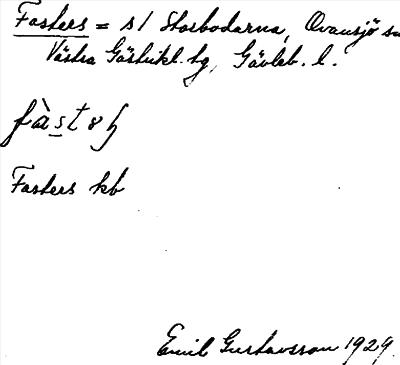 Fasters = s/ Storbodarna, Ovansjö sn
Västra Gästrikl. tg, Gävleb. l.
Fasters kb
Emil Gustavsson 1929.